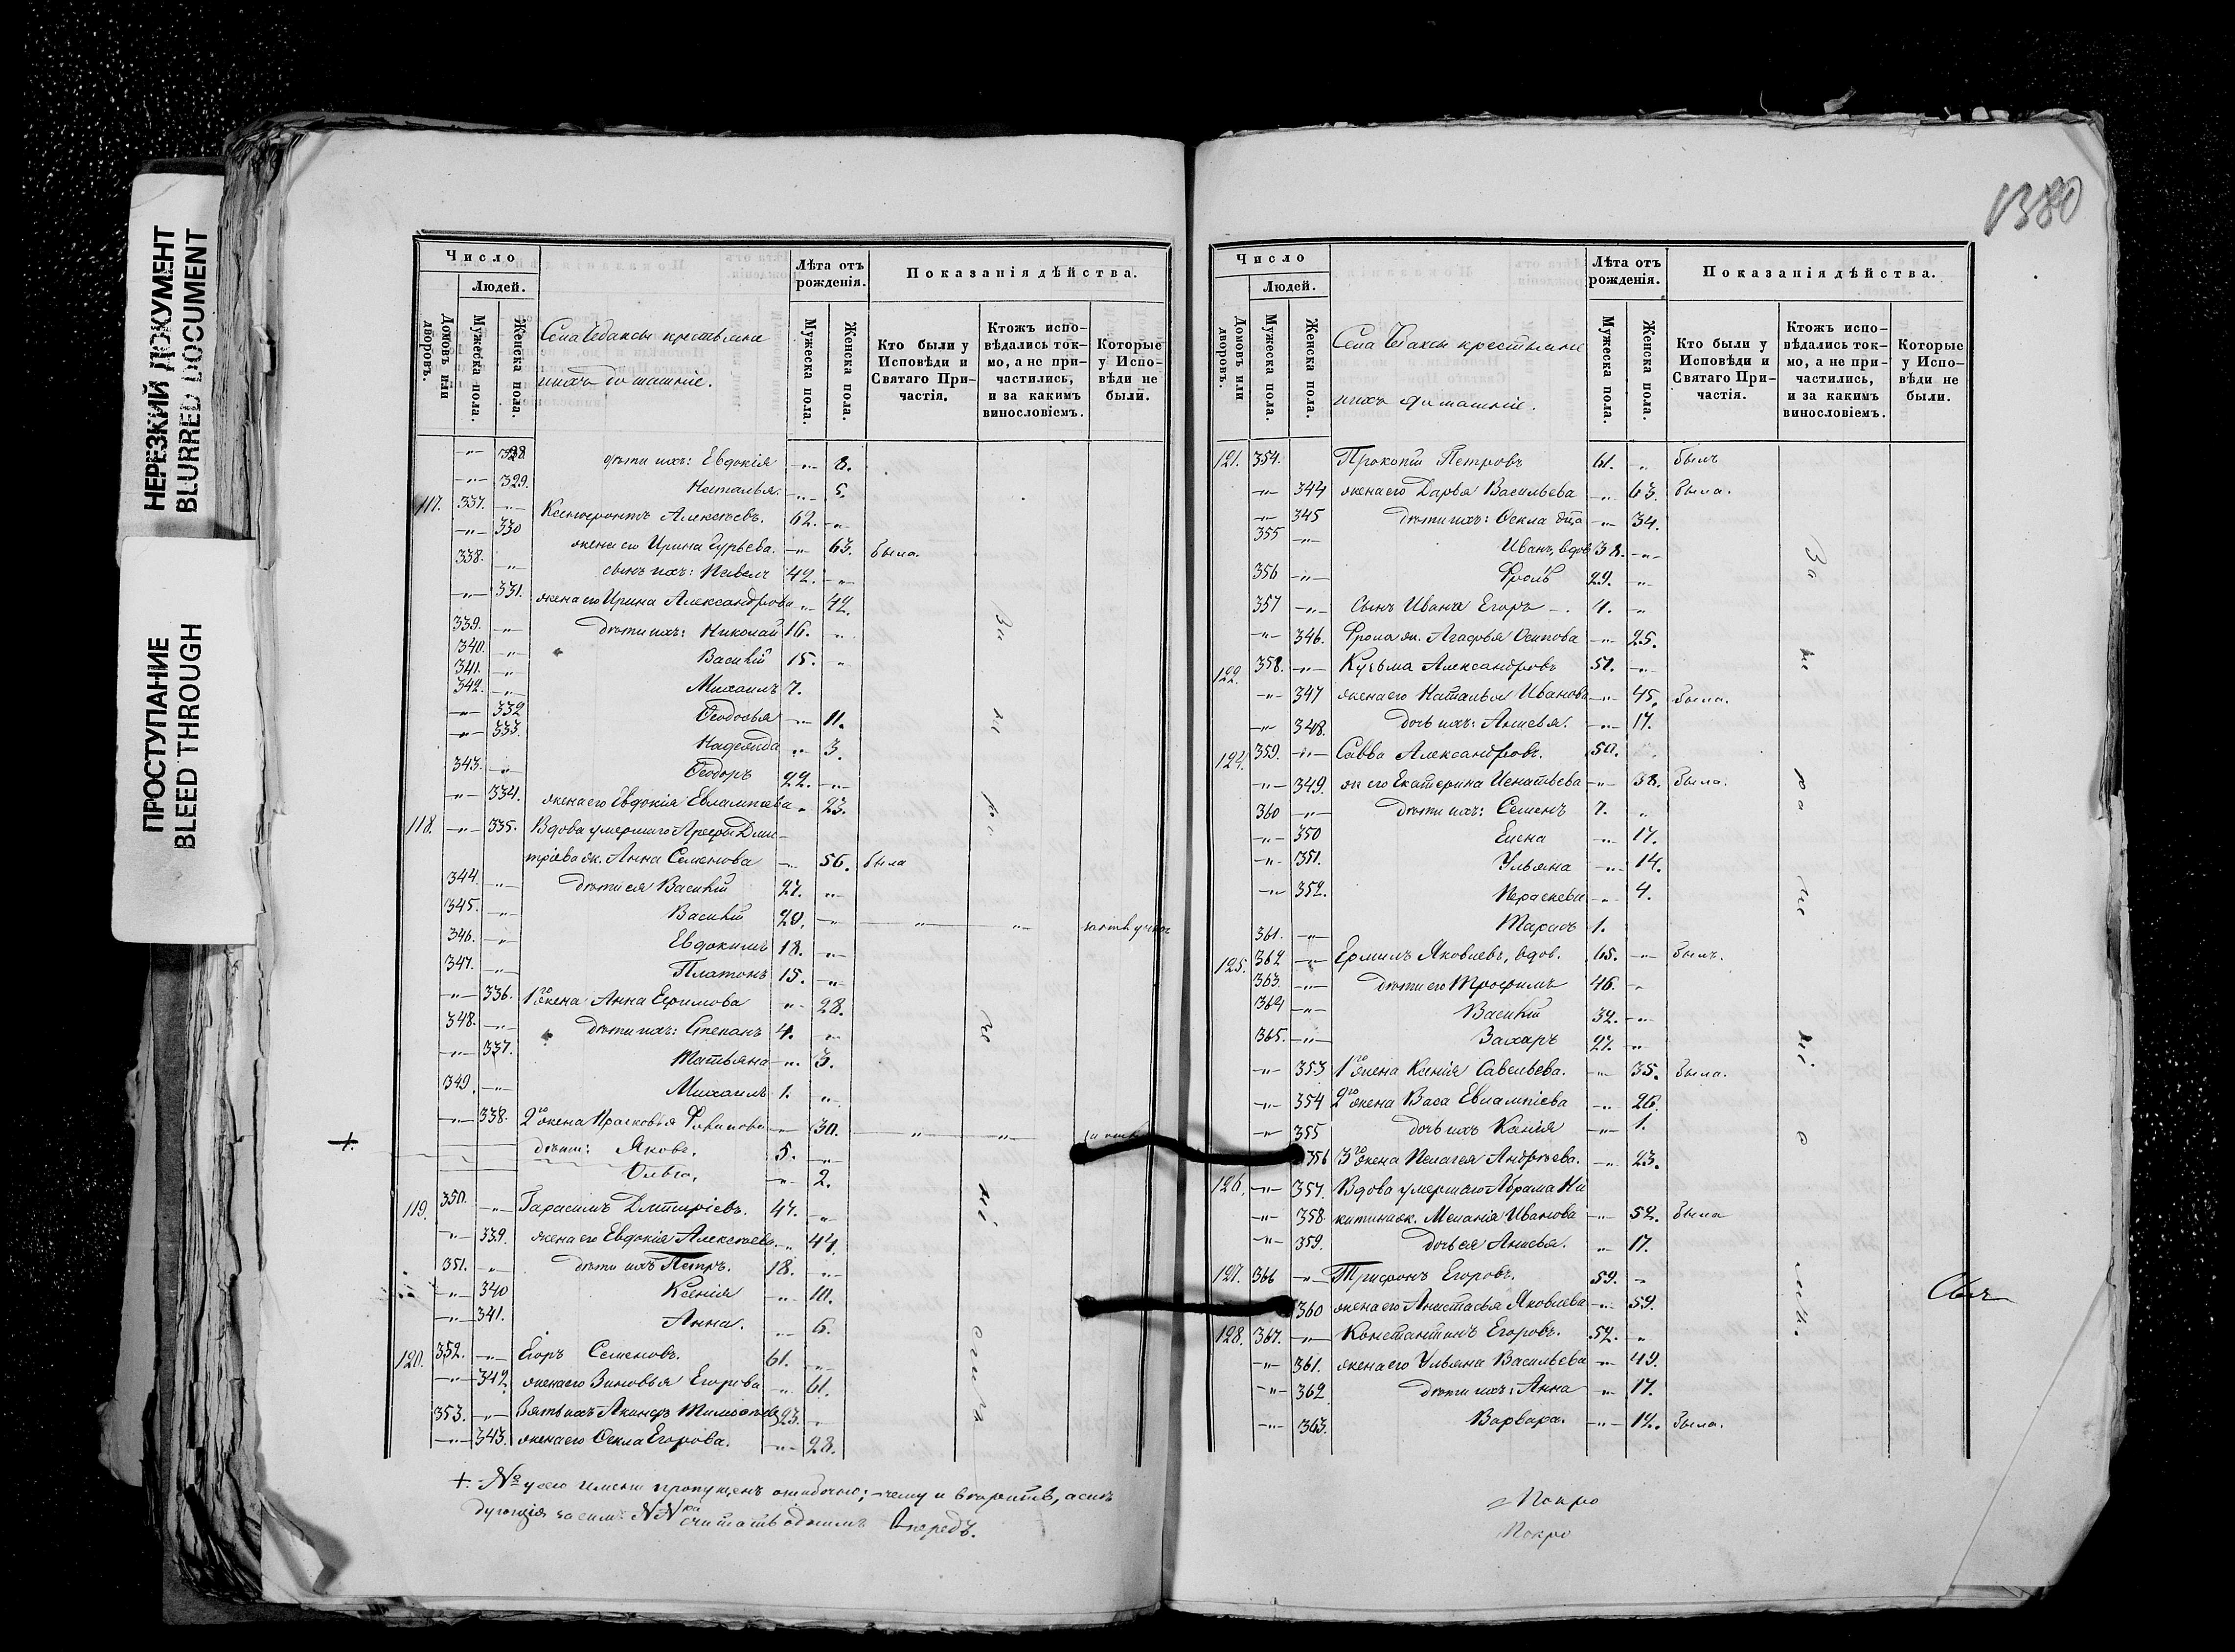 НЕРЕЗКИЙ ДОКУМЕНТ
BLURRED DOCUMENT
ПРОСТУПАНИЕ
BLEED THROUGH
Число
Людей.
Домовъ или дворовъ.
Мужеска пола.
Женска пола.
крестьяне
ихъ домашніе.
Лѣта отъ рожденія.
Мужеска пола.
Женска пола.
Показанія дѣйства.
Кто были у Исповѣди и Святаго Причастія.
Ктожъ исповѣдались токмо, а не причастились, и за какимъ винословіемъ.
Которые у Исповѣди не были.
328 дѣти ихъ: Евдокія 8.
329. Наталья 5.
117. 337. Ксенофонтъ Алексѣевъ. 62.
330 жена его Ирина Гурьева. 63. была.
338. сынъ ихъ: Павелъ 42.
331. жена его Ирина Александрова 42.
339. дѣти ихъ: Николай 16.
340. Василій 15.
341. 342. Михаилъ 7.
332 Ѳеодосья 11.
333. Надежда 3.
343. Ѳеодоръ 22.
334. жена его Евдокія Евлампіева 23.
118. 335. Вдова умершаго Арефы Дми-
тріева ж. Анна Семенова 56. была
344. дѣти ея Василій 27.
345. Василій 20.
346. Евдокимъ 18.
347. Платонъ 15.
336. 1го жена Анна Ефимова 28.
348. дѣти ихъ: Степанъ 4.
337. Татьяна 3.
349. Михаилъ 1.
338. 2го жена Прасковья Филипова 30.
+
дѣти: Яковъ. 5.
Ольга. 2.
119. 350. Гарасимъ Дмитріевъ. 47.
339. жена его Евдокія Алексѣева 44.
351. дѣти ихъ Петръ. 18.
340 Ксенія 10.
341. Анна. 6.
120. 352. Егоръ Семеновъ. 61.
342. жена его Зиновья Егорова 61.
353. Зять ихъ 23.
343. жена его Ѳекла Егорова. 28.
+. № у сего имени пропущенъ ошибочно;
считать однимъ впередъ.
1380
Число
Людей.
Домовъ или дворовъ.
Мужеска пола.
Женска пола.
Села крестьяне
ихъ домашніе.
Лѣта отъ рожденія.
Мужеска пола.
Женска пола.
Показанія дѣйства.
Кто были у Исповѣди и Святаго Причастія.
Ктожъ исповѣдались токмо, а не причастились, и за какимъ винословіемъ.
Которые у Исповѣди не были.
121. 354. Прокопій Петровъ 61. былъ
344 жена его Дарья Васильева 63. была.
345 дѣти ихъ: Ѳекла 34.
355 Иванъ, вдов 38.
356 Фролъ 29.
357 сынъ Ивана Егоръ 4.
346. Фрола ж. Агафья Осипова 25.
122. 358. Кузьма Александровъ 51.
347 жена его Наталья Иванова 45. была.
348. дочь ихъ: Анисья. 17.
124. 359. Савва Александровъ. 50.
349. ж его Екатерина Игнатьева 38. была.
360 дѣти ихъ: Семенъ 7.
350 Елена 17.
351. Ульяна 14.
352. Параскеви 4.
361. Тарасъ 1.
125. 362 Ермилъ Яковлевъ, вдов. 65. былъ.
363. дѣти его Трофимъ 46.
364 Василій 32.
365. Захаръ 27.
353 1го жена Ксенія Савельева. 35. была.
354 2го жена Васа Евлампіева 26.
355 дочь ихъ Ксенія 1.
356 3го жена Пелагея Андреева. 23.
126. 357. Вдова умершаго Абрама Ни
358 китина ж. Меланія Иванова 52. была
359. дочь ея Анисья. 17.
127. 366 Трифонъ Егоровъ. 59.
360 жена его Анастасья Яковлева 59.
128. 367. Константинъ Егоровъ. 52.
361. жена его Ульяна Васильева 49.
362 дѣти ихъ: Анна 17.
363. Варвара. 12. была.
Покро
Покро